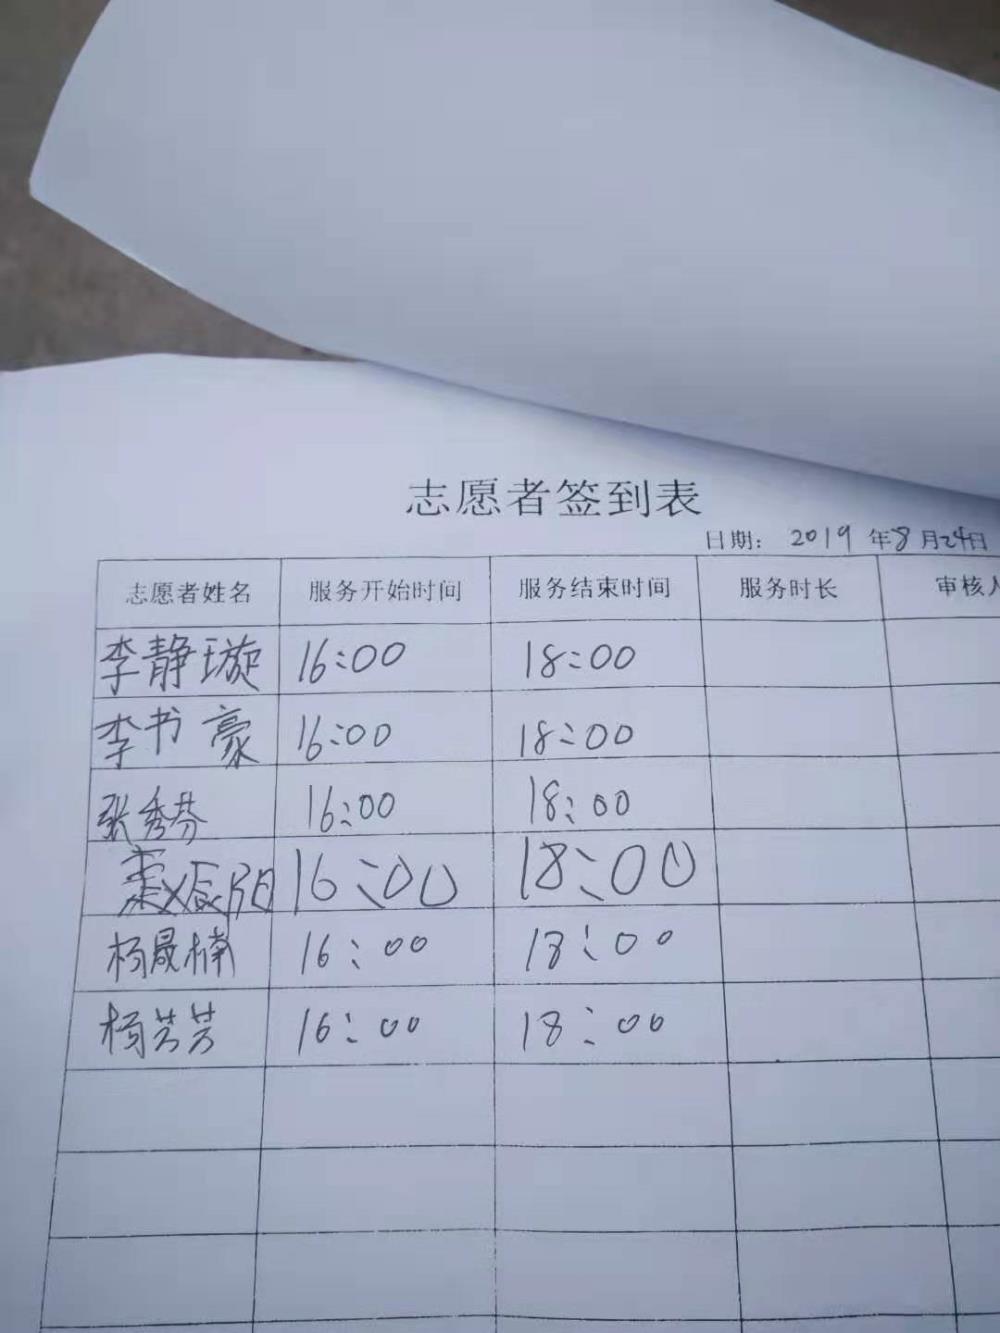 志愿者签到表
日期： 2019 年8月24日
志愿者姓名 服务开始时间 服务结束时间 服务时长 审核人
李静璇 16:00 18:00
李书豪 16:00 18:00
张秀芬 16:00 18:00
16:00 18:00
杨晟楠 16:00 18:00
杨芳芳 16:00 18:00